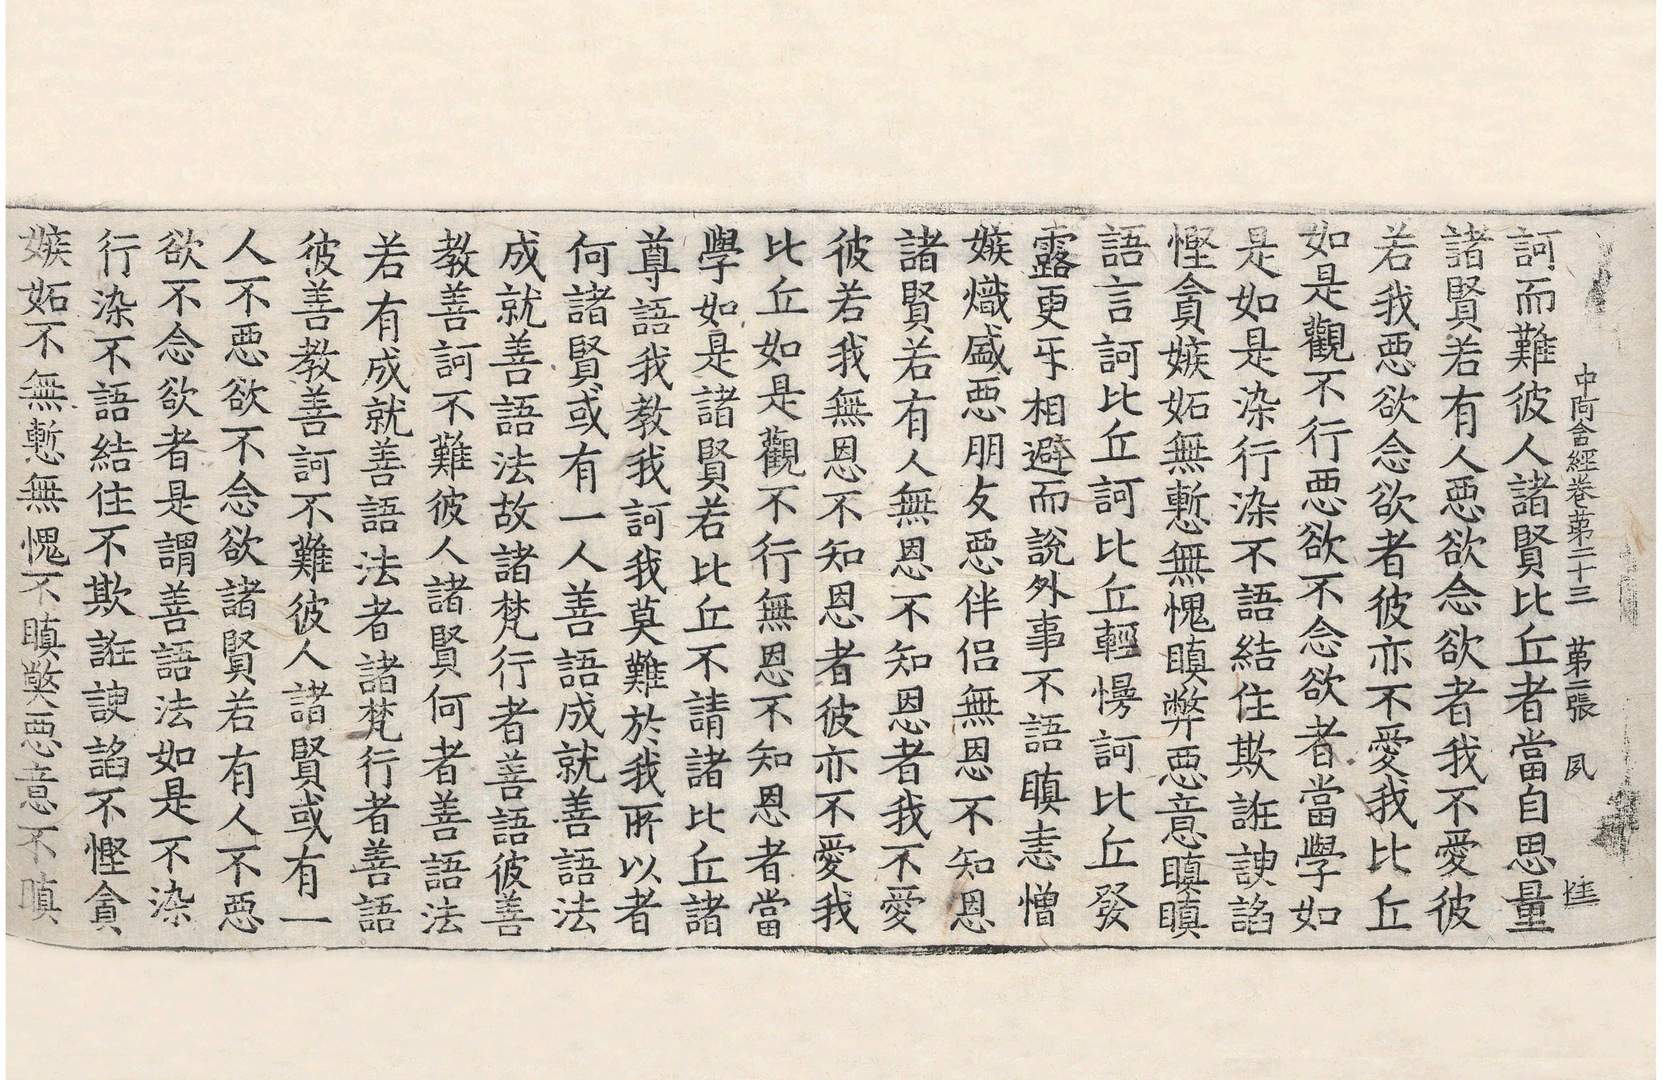 中阿含經卷第二十三　第二張　夙　恠
訶而難彼人諸賢比丘者當自思量
諸賢若有人惡欲念欲者我不愛彼
若我惡欲念欲者彼亦不愛我比丘
如是觀不行惡欲不念欲者當學如
是如是染行染不語結住欺誑諛諂
慳貪嫉妬無慙無愧瞋弊惡意瞋瞋
語言訶比丘訶比丘輕慢訶比丘發
露更互相避而說外事不語瞋恚憎
嫉熾盛惡朋友惡伴侶無恩不知恩
諸賢若有人無恩不知恩者我不愛
彼若我無恩不知恩者彼亦不愛我
比丘如是觀不行無恩不知恩者當
學如是諸賢若比丘不請諸比丘諸
尊語我教我訶我莫難於我所以者
何諸賢或有一人善語成就善語法
成就善語法故諸梵行者善語彼善
教善訶不難彼人諸賢何者善語法
若有成就善語法者諸梵行者善語
彼善教善訶不難彼人諸賢或有一
人不惡欲不念欲諸賢若有人不惡
欲不念欲者是謂善語法如是不染
行染不語結住不欺誑諛諂不慳貪
嫉妬不無慙無愧不瞋弊惡意不瞋